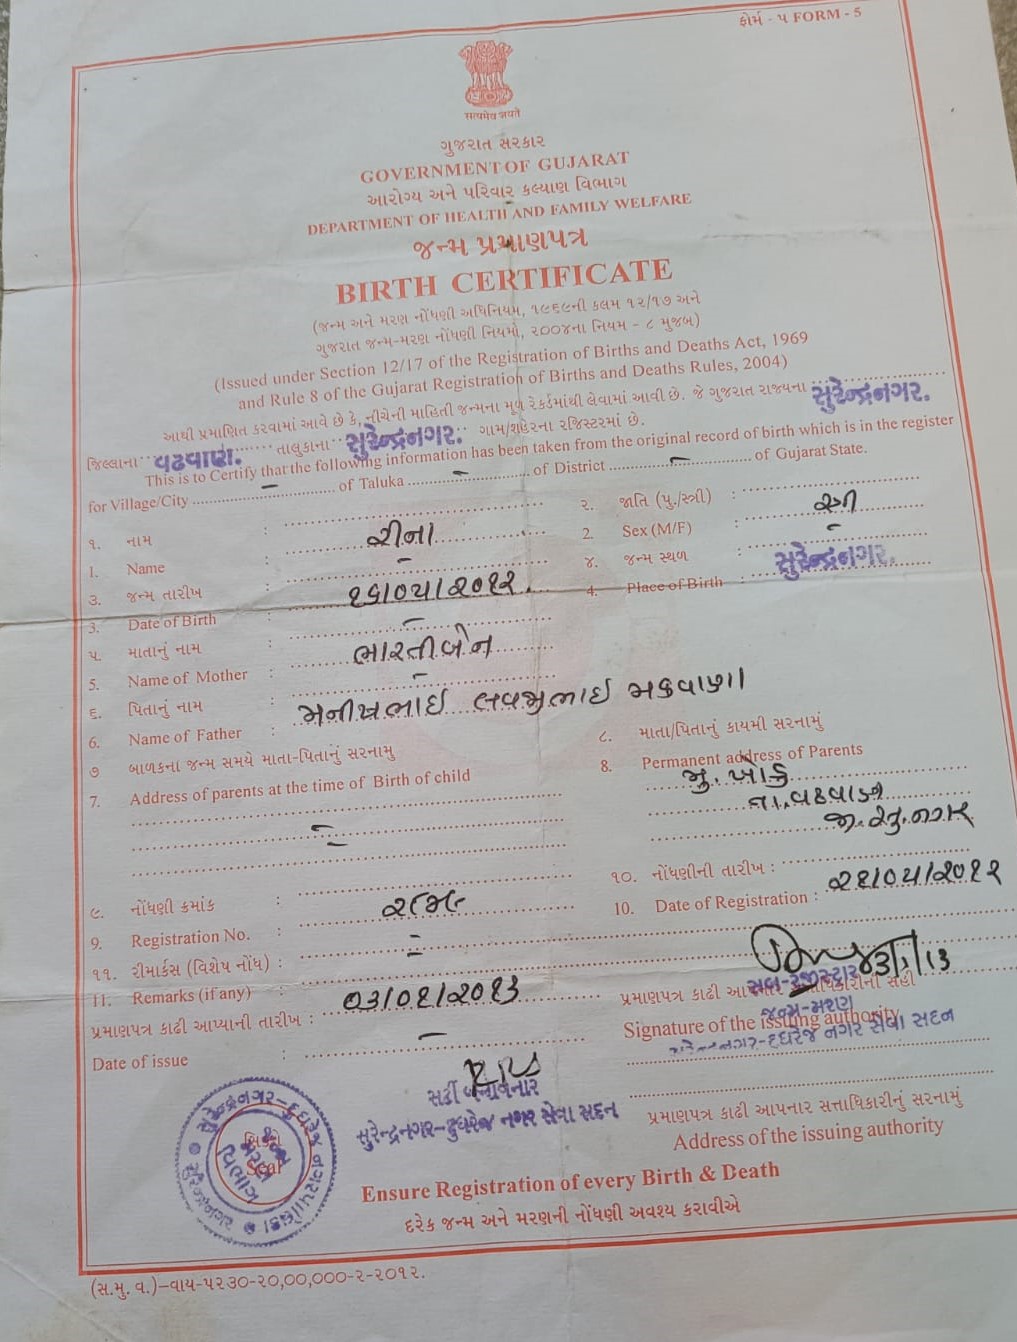 ફોર્મ - ૫ FORM - 5
सत्यमेव जयते
ગુજરાત સરકાર
GOVERNMENT OF GUJARAT
આરોગ્ય અને પરિવાર કલ્યાણ વિભાગ
DEPARTMENT OF HEALTH AND FAMILY WELFARE
જન્મ પ્રમાણપત્ર
BIRTH CERTIFICATE
(જન્મ અને મરણ નોંધણી અધિનિયમ, ૧૯૬૯ની કલમ ૧૨/૧૭ અને
ગુજરાત જન્મ-મરણ નોંધણી નિયમો, ૨૦૦૪ના નિયમ - ૮ મુજબ)
(Issued under Section 12/17 of the Registration of Births and Deaths Act, 1969
and Rule 8 of the Gujarat Registration of Births and Deaths Rules, 2004)
આથી પ્રમાણિત કરવામાં આવે છે કે, નીચેની માહિતી જન્મના મૂળ રેકર્ડમાંથી લેવામાં આવી છે. જે ગુજરાત રાજ્યના સુરેન્દ્રનગર.
જિલ્લાના વઢવાણ. તાલુકાના સુરેન્દ્રનગર. ગામ/શહેરના રજિસ્ટરમાં છે.
This is to Certify that the following information has been taken from the original record of birth which is in the register
for Village/City - of Taluka - of District - of Gujarat State.
૧. નામ : રીના ૨. જાતિ (પુ./સ્ત્રી) : સ્ત્રી
1. Name : - 2. Sex (M/F) : -
૩. જન્મ તારીખ : ૧૬/૦૫/૨૦૧૨ ૪. જન્મ સ્થળ : સુરેન્દ્રનગર.
3. Date of Birth : - 4. Place of Birth :
૫. માતાનું નામ : ભારતીબેન
5. Name of Mother : -
૬. પિતાનું નામ : મનીષભાઈ લવજીભાઈ મકવાણા
6. Name of Father :
૭ બાળકના જન્મ સમયે માતા-પિતાનું સરનામુ ૮. માતા/પિતાનું કાયમી સરનામું
7. Address of parents at the time of Birth of child 8. Permanent address of Parents
મુ. ખોડુ
તા. વઢવાણ
જી. સુ.નગર
૯. નોંધણી ક્રમાંક : ૧૦. નોંધણીની તારીખ : ૨૧/૦૫/૨૦૧૨
9. Registration No. : 10. Date of Registration :
૧૧. રીમાર્કસ (વિશેષ નોંધ) :
11. Remarks (if any) :
પ્રમાણપત્ર કાઢી આપ્યાની તારીખ : ૦૩/૦૧/૨૦૧૩ 3/1/13
Date of issue : -
પ્રમાણપત્ર કાઢી આપનાર સત્તાધિકારીની સહી
Signature of the issuing authority
સબ-રજીસ્ટ્રાર
જન્મ-મરણ
સુરેન્દ્રનગર-દુધરેજ નગર સેવા સદન
સર્ટી બનાવનાર
સુરેન્દ્રનગર-દુધરેજ નગર સેવા સદન
પ્રમાણપત્ર કાઢી આપનાર સત્તાધિકારીનું સરનામું
Address of the issuing authority
સુરેન્દ્રનગર-દુધરેજ નગરપાલિકા
જન્મ મરણ વિભાગ
સિક્કો
Seal
Ensure Registration of every Birth & Death
દરેક જન્મ અને મરણની નોંધણી અવશ્ય કરાવીએ
(સ.મુ. વ.)-વાય-૫૨૩૦-૨૦,૦૦,૦૦૦-૨-૨૦૧૨.